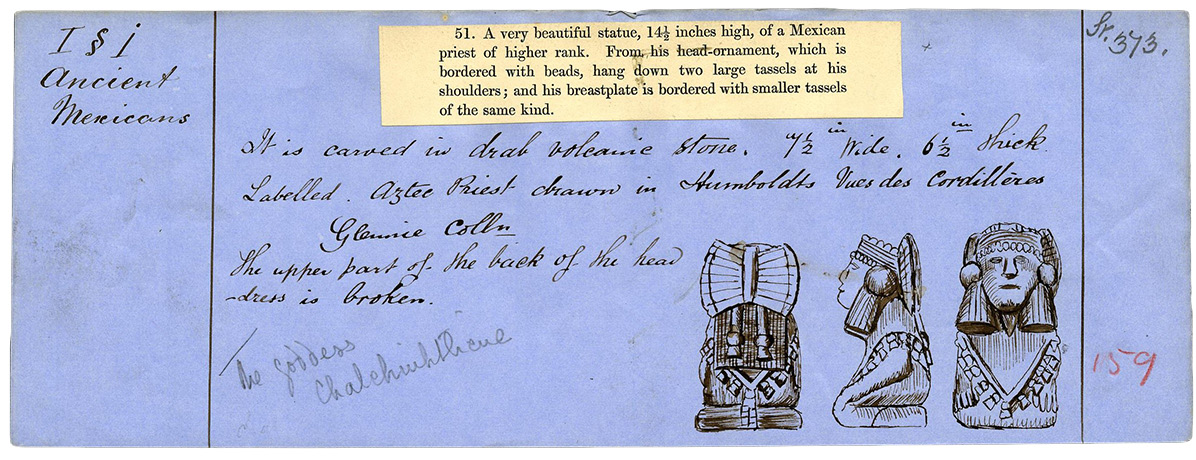 I § j
Ancient
Mexicans
51. A very beautiful statue, 14½ inches high, of a Mexican
priest of higher rank. From his head-ornament, which is
bordered with beads, hang down two large tassels at his
shoulders; and his breastplate is bordered with smaller tassels
of the same kind.
St. 373.
It is carved in drab volcanic stone. 7½ in Wide. 6½ in thick
Labelled. Aztec Priest drawn in Humboldts Vues des Cordillères
Glennie Colln
The upper part of the back of the head
-dress is broken.
The goddess
Chalchiuhtlicue
159